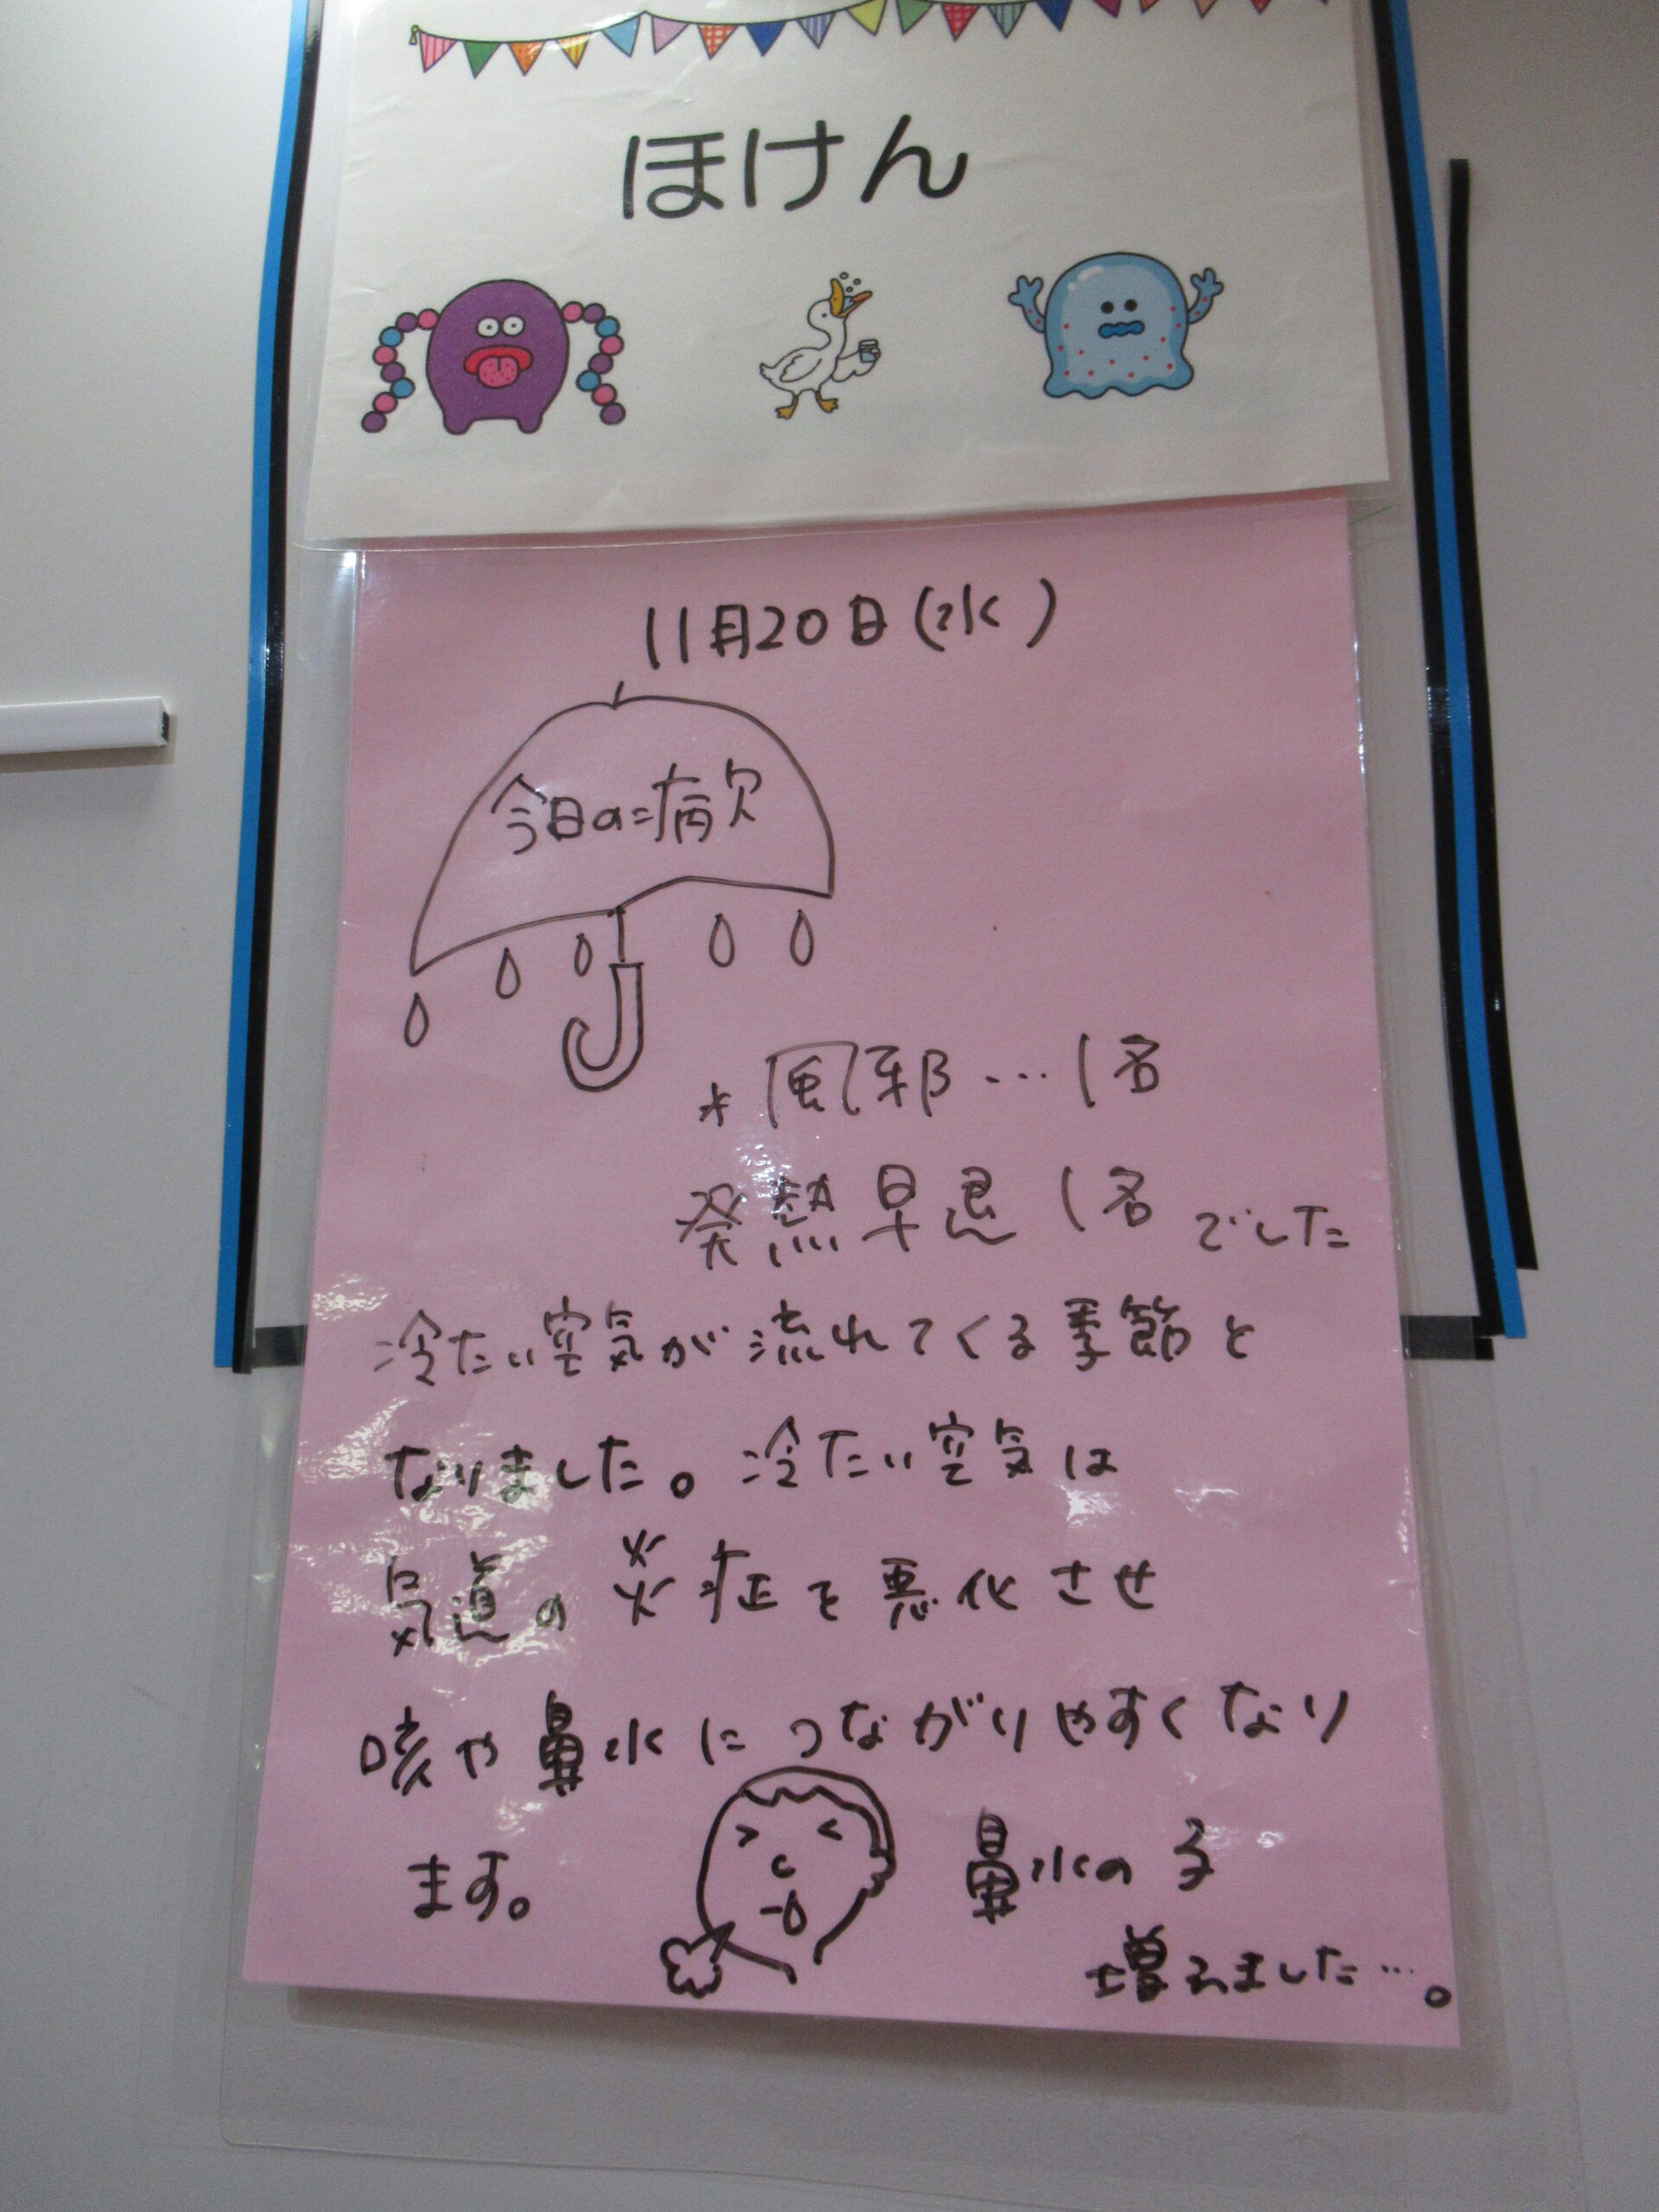 ほけん
11月20日(水)
今日の病欠
*風邪…1名
発熱早退 1名 でした
冷たい空気が流れてくる季節と
なりました。冷たい空気は
気道の炎症を悪化させ
咳や鼻水につながりやすくなり
ます。
鼻水の子
増えました…。